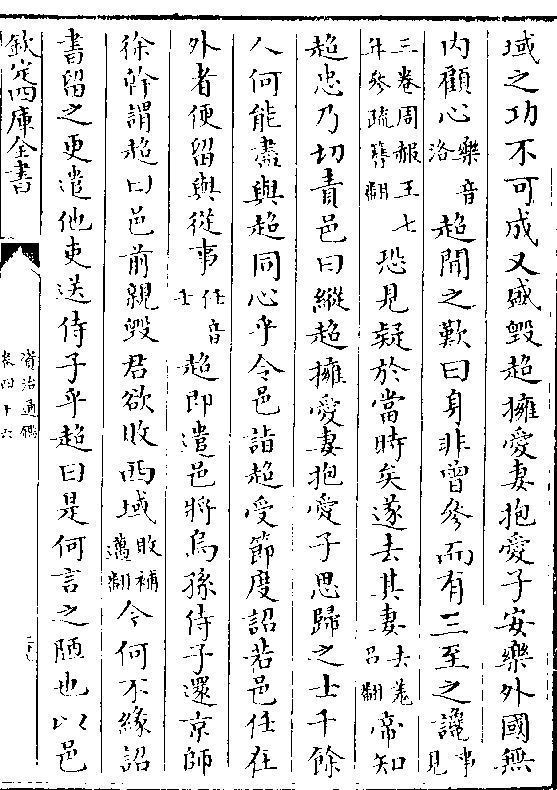 域之功不可成又盛毁超擁愛妻抱愛子安樂外國無
内顧心樂音洛超聞之歎曰身非曾參而有三至之讒事見
三卷周赧王七年參疏簪翻恐見疑於當時矣遂去其妻去羌呂翻帝知
超忠乃切責邑曰縱超擁愛妻抱愛子思歸之士千餘
人何能盡與超同心乎令邑詣超受節度詔若邑任在
外者便留與從事任音壬超即遣邑將烏孫侍子還京師
徐幹謂超曰邑前親毁君欲敗西域敗補邁翻今何不緣詔
書留之更遣他吏送侍子乎超曰是何言之陋也以邑
欽定四庫全書
資治通鑑
卷四十六